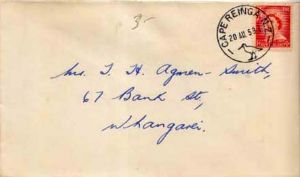 3-
CAPE REINGA. N.Z.
20 JAN 59
Mrs. T. H. Agnew-Smith,
67 Bank St,
Whangarei.